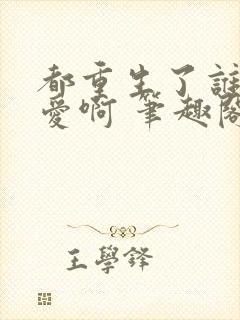 都重生了誰
愛啊 筆趣閣
王學鋒